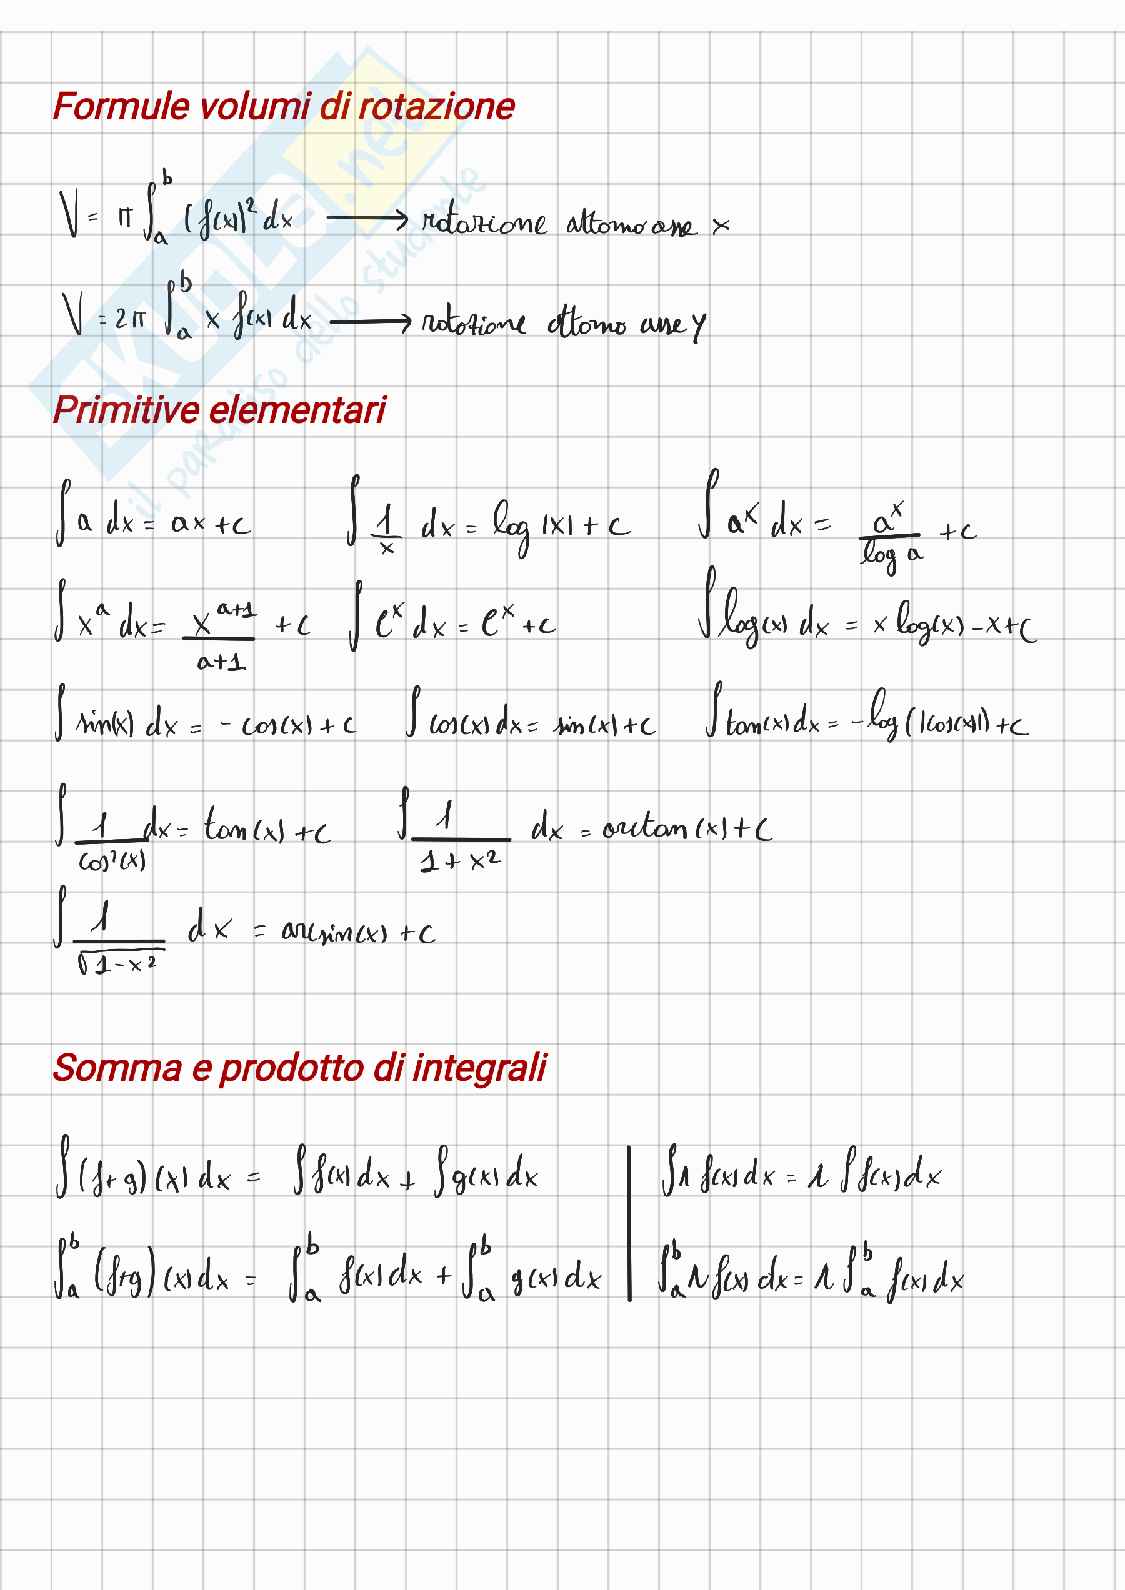 Formule volumi di rotazione
V = π ∫_a^b (f(x))² dx ⟶ rotazione attorno asse x
V = 2π ∫_a^b x f(x) dx ⟶ rotazione attorno asse y
SKUOLA.net
il paradiso dello studente
Primitive elementari
∫ a dx = ax + c ∫ 1/x dx = log |x| + c ∫ a^x dx = a^x / log a + c
∫ x^a dx = x^(a+1) / a+1 + c ∫ e^x dx = e^x + c ∫ log(x) dx = x log(x) - x + c
∫ sin(x) dx = - cos(x) + c ∫ cos(x) dx = sin(x) + c ∫ tan(x) dx = - log (|cos(x)|) + c
∫ 1 / cos²(x) dx = tan(x) + c ∫ 1 / 1 + x² dx = arctan(x) + c
∫ 1 / √1 - x² dx = arcsin(x) + c
Somma e prodotto di integrali
∫ (f+g)(x) dx = ∫ f(x) dx + ∫ g(x) dx | ∫ λ f(x) dx = λ ∫ f(x) dx
∫_a^b (f+g)(x) dx = ∫_a^b f(x) dx + ∫_a^b g(x) dx | ∫_a^b λ f(x) dx = λ ∫_a^b f(x) dx